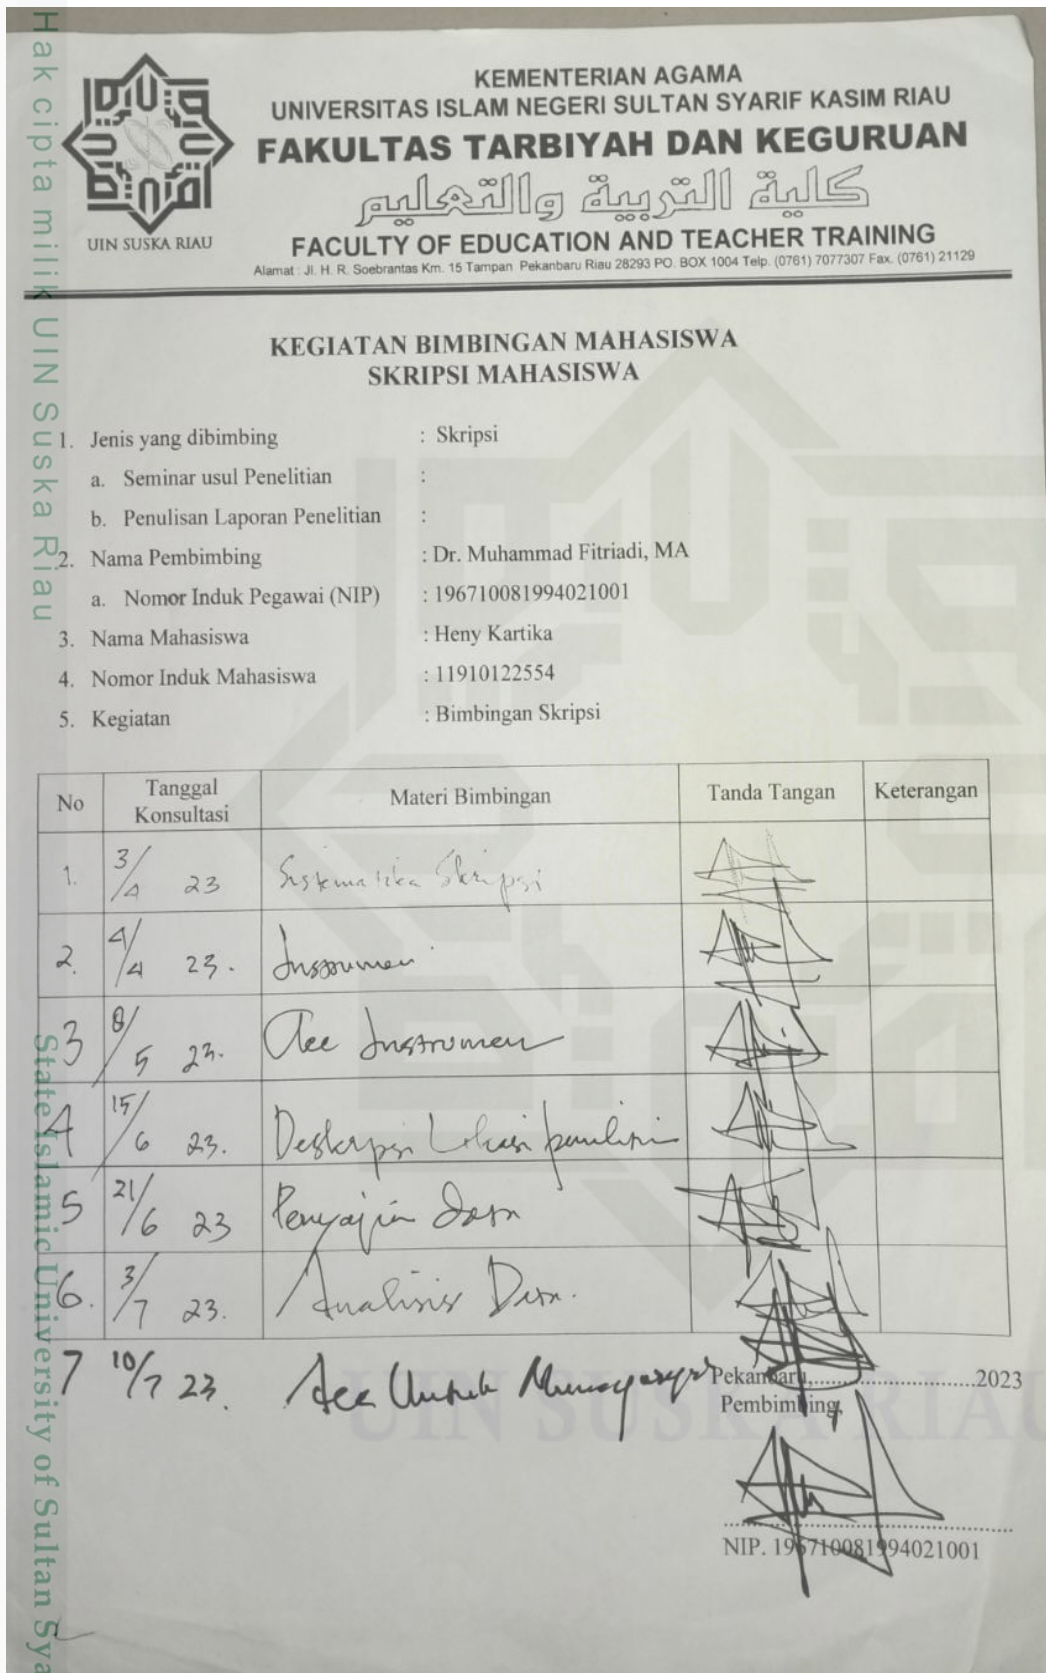 Hak cipta milik UIN Suska Riau
State Islamic University of Sultan Sya
UIN SUSKA RIAU
KEMENTERIAN AGAMA
UNIVERSITAS ISLAM NEGERI SULTAN SYARIF KASIM RIAU
FAKULTAS TARBIYAH DAN KEGURUAN
كلية التربية والتعليم
FACULTY OF EDUCATION AND TEACHER TRAINING
Alamat : Jl. H. R. Soebrantas Km. 15 Tampan Pekanbaru Riau 28293 PO. BOX 1004 Telp. (0761) 7077307 Fax. (0761) 21129
KEGIATAN BIMBINGAN MAHASISWA
SKRIPSI MAHASISWA
1. Jenis yang dibimbing : Skripsi
a. Seminar usul Penelitian :
b. Penulisan Laporan Penelitian :
2. Nama Pembimbing : Dr. Muhammad Fitriadi, MA
a. Nomor Induk Pegawai (NIP) : 196710081994021001
3. Nama Mahasiswa : Heny Kartika
4. Nomor Induk Mahasiswa : 11910122554
5. Kegiatan : Bimbingan Skripsi
No Tanggal Konsultasi Materi Bimbingan Tanda Tangan Keterangan
1. 3/4 23 Sistematika Skripsi
2. 4/4 23. Instrumen
3 8/5 23. Acc Instrumen
4 15/6 23. Deskripsi Lokasi
5 21/6 23 Penyajian Data
6. 3/7 23. Analisis Data.
7 10/7 23. Acc Untuk
Pekanbaru,..............................2023
Pembimbing,
NIP. 196710081994021001
UIN SUSKA RIAU